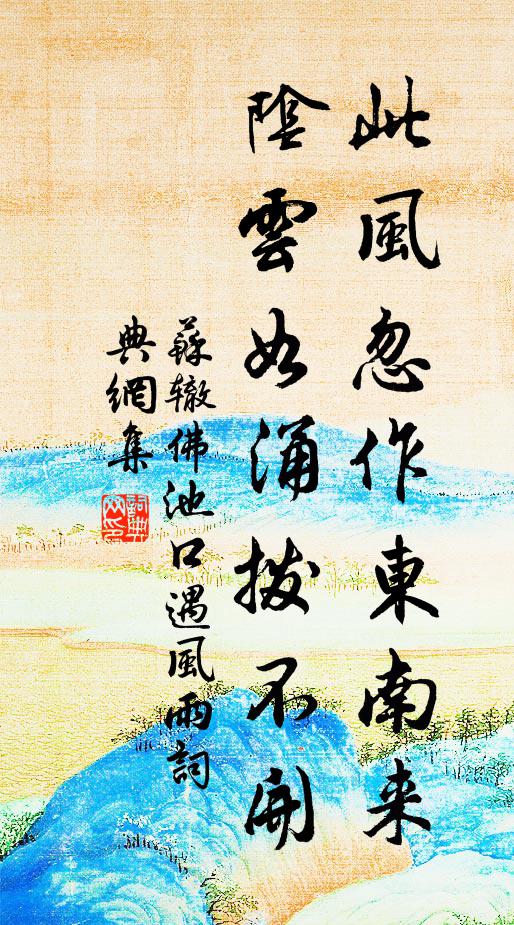 此風忽作東南来
陰雲如涌撥不開
蘇辙佛池口遇風雨詞
典網集
詞典